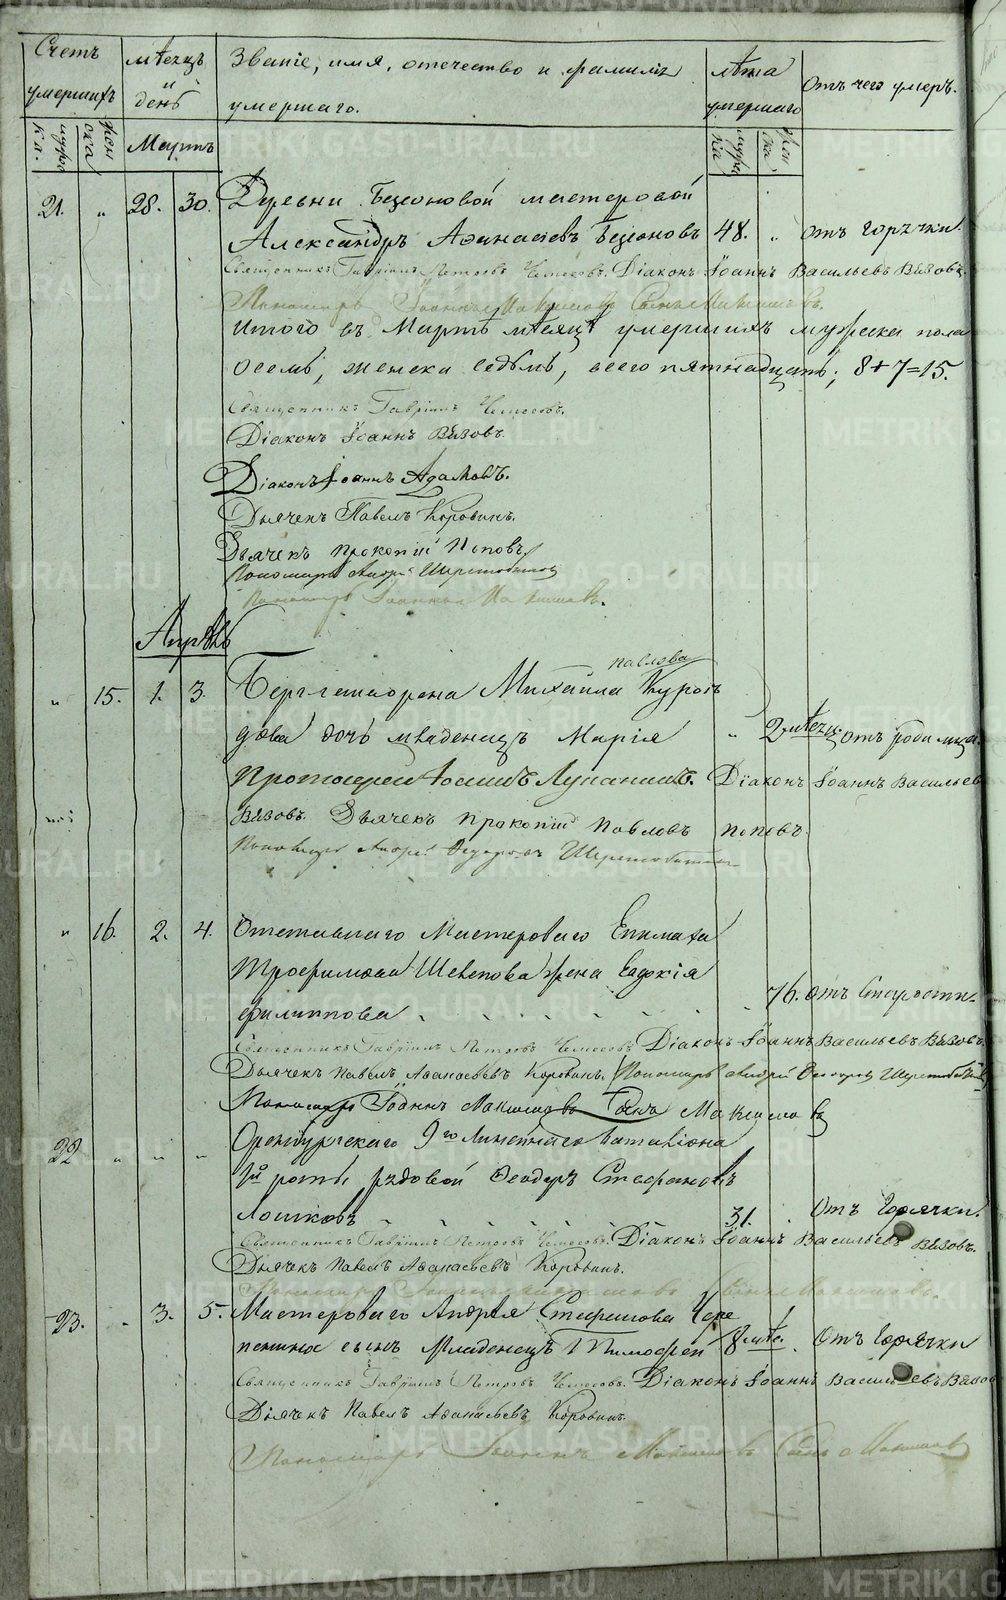 Счетъ умершихъ
мѣсяцъ и день
Званіе, имя, отечество и фамилія умершаго.
лѣта умершаго
Отъ чего умеръ.
муже ка.
жен ска
Мартъ
муже ка
жен ска.
21. " 28. 30. Деревни Безсоновой мастеровой
Александръ Аѳанасьевъ Безсоновъ 48. " отъ горячки.
Священникъ Гавріилъ Петровъ Діаконъ Іоаннъ Васильевъ Вязовъ.
Пономарь Іоаннъ Максимовъ Сынъ Максимовъ.
Итого въ Мартѣ мѣсяцѣ умершихъ мужеска пола
осемь, женска седьмь, всего пятнадцать; 8+7=15.
Священникъ Гавріилъ
Діаконъ Іоаннъ Вязовъ.
Діаконъ Іоаннъ Адамовъ.
Дьячекъ Павелъ Коровинъ.
Дьячекъ Прокопій Поповъ.
Пономарь Андрей
Пономарь Іоаннъ Максимовъ.
Апрѣль
павлова
" 15. 1. 3. Берггешворена Михайла
дова дочь младенецъ Марія " 2 мѣсяц. отъ родимца.
Протоіерей Діаконъ Іоаннъ Васильевъ
Вязовъ. Дьячекъ Прокопій Павловъ Поповъ.
Пономарь Андрей Ѳедоровъ
" 16. 2. 4. Отставнаго Мастероваго Епимаха
Трофимова Шевелова жена Евдокія
филиппова 76. отъ Старости.
Священникъ Гавріилъ Петровъ Діаконъ Іоаннъ Васильевъ Вязовъ.
Дьячекъ Павелъ Аѳанасьевъ Коровинъ. Пономарь Андрей Ѳедоровъ
Пономарь Іоаннъ Максимовъ Сынъ Максимовъ
22 " " " Оренбургскаго 9го Линейнаго баталіона
1й роты рядовой Ѳеодоръ Стефановъ
Лошковъ 31. Отъ Горячки.
Священникъ Гавріилъ Петровъ Діаконъ Іоаннъ Васильевъ Вязовъ.
Дьячекъ Павелъ Аѳанасьевъ Коровинъ.
Пономарь Іоаннъ Максимовъ Сынъ Максимовъ.
23. " 3. 5. Мастероваго Андрея Стефанова Чере
пенина сынъ Младенецъ Тимофей 8 мѣс. Отъ Горячки
Священникъ Гавріилъ Петровъ Діаконъ Іоаннъ Васильевъ Вязов
Дьячекъ Павелъ Аѳанасьевъ Коровинъ.
Пономарь Іоаннъ Максимовъ Сынъ Максимовъ
METRIKI.GASO-URAL.RU